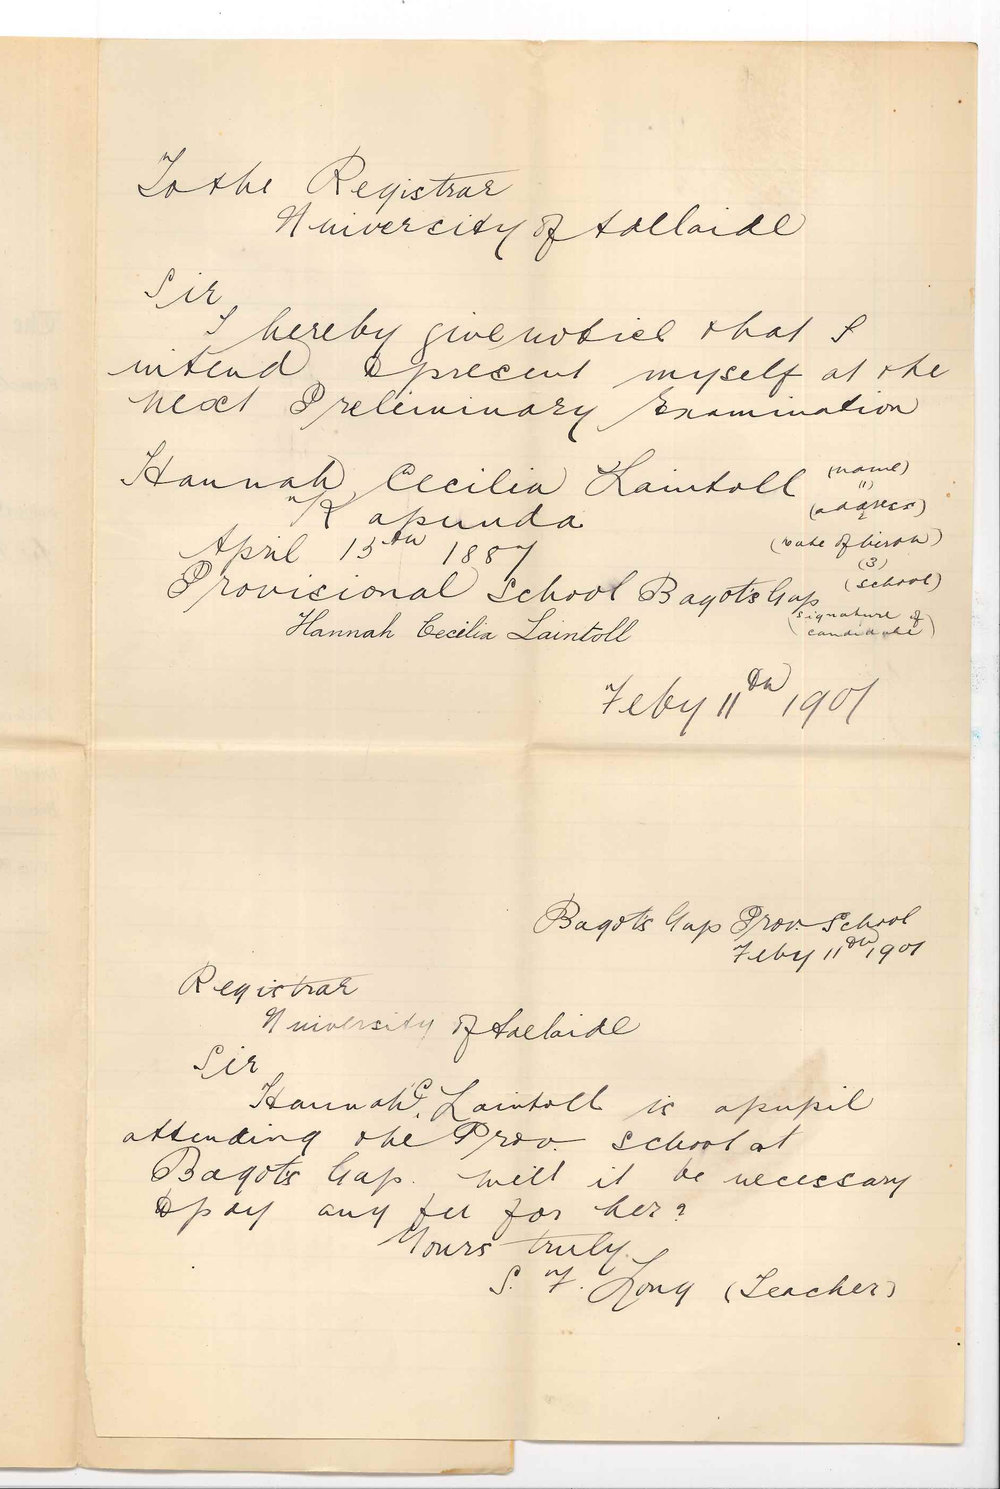 To the Registrar
University of Adelaide
Sir
I hereby give notice that I
intend to present myself at the
next Preliminary Examination
Hannah Cecilia Laintoll (name)
Kapunda (address)
April 15th 1887 (date of birth)
(3)
Provisional School Bagot's Gap (school)
Hannah Cecilia Laintoll (signature of
candidate)
Feby 11th 1901
Bagot's Gap Prov. School
Feby 11th 1901
Registrar
University of Adelaide
Sir
Hannah C. Laintoll is a pupil
attending the Prov. School at
Bagot's Gap. Will it be necessary
to pay any fee for her?
Yours truly.
S. F. Long (Teacher)